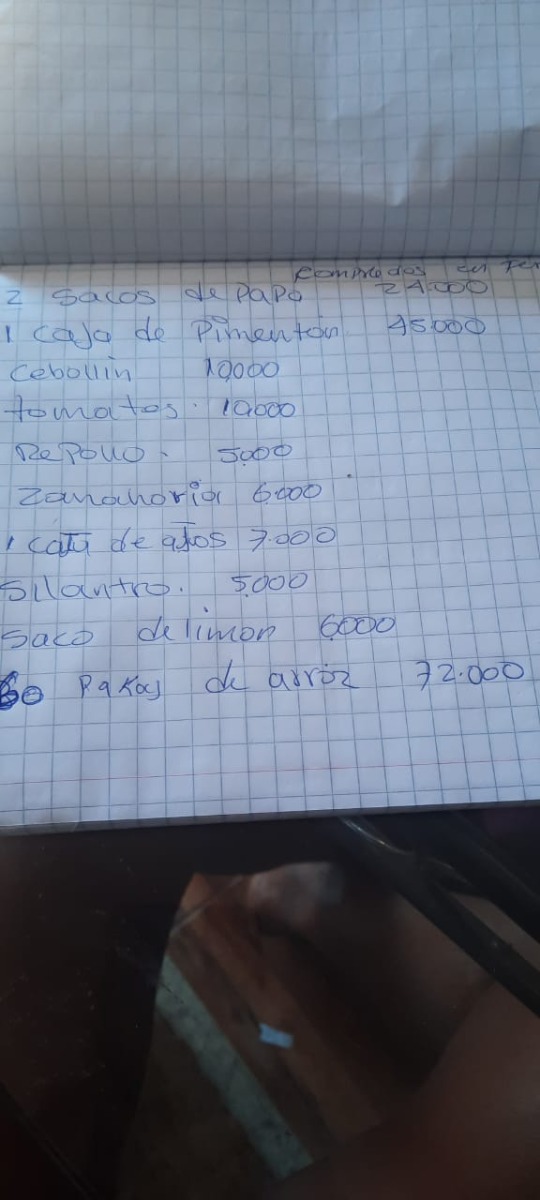 Comprados en
2 Sacos de Papa 24.000
1 caja de Pimentón 45.000
Cebollin 10.000
tomatos. 10.000
Repollo. 5.000
Zanahoria 6.000
1 caja de ajos 7.000
Silantro. 5.000
Saco de limon 6.000
60 Pakas de arroz 72.000